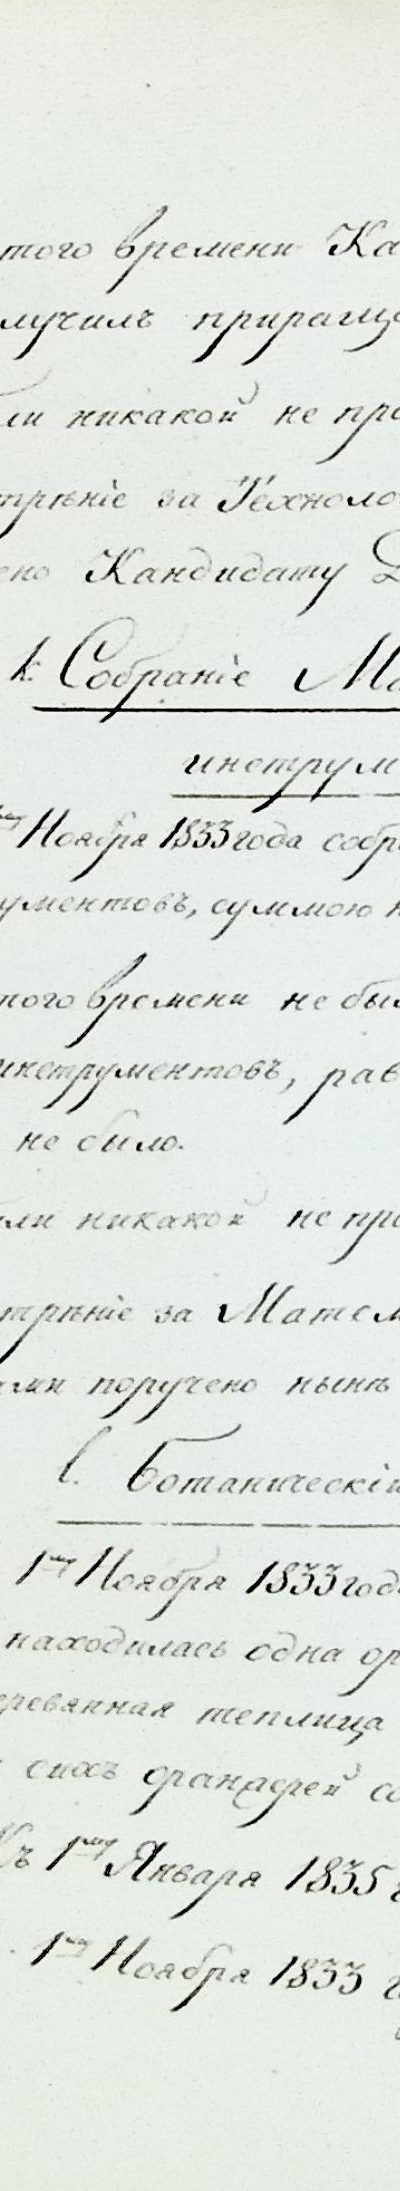 того времени Ка
лучилъ приращ
ли никакой не про
трѣніе за Техноло
ено Кандидату
k. Собраніе Ма
инструм
Ноября 1833 года собр
ументовъ, суммою н
того времени не был
инструментовъ, рав
не было.
ли никакой не при
трѣніе за Матем
ами поручено нынѣ
l. Ботаническій
1го Ноября 1833 год
находилась одна ор
еревянная теплица
сихъ оранжерей со
Къ 1му Января 1835 г
1го Ноября 1833 г